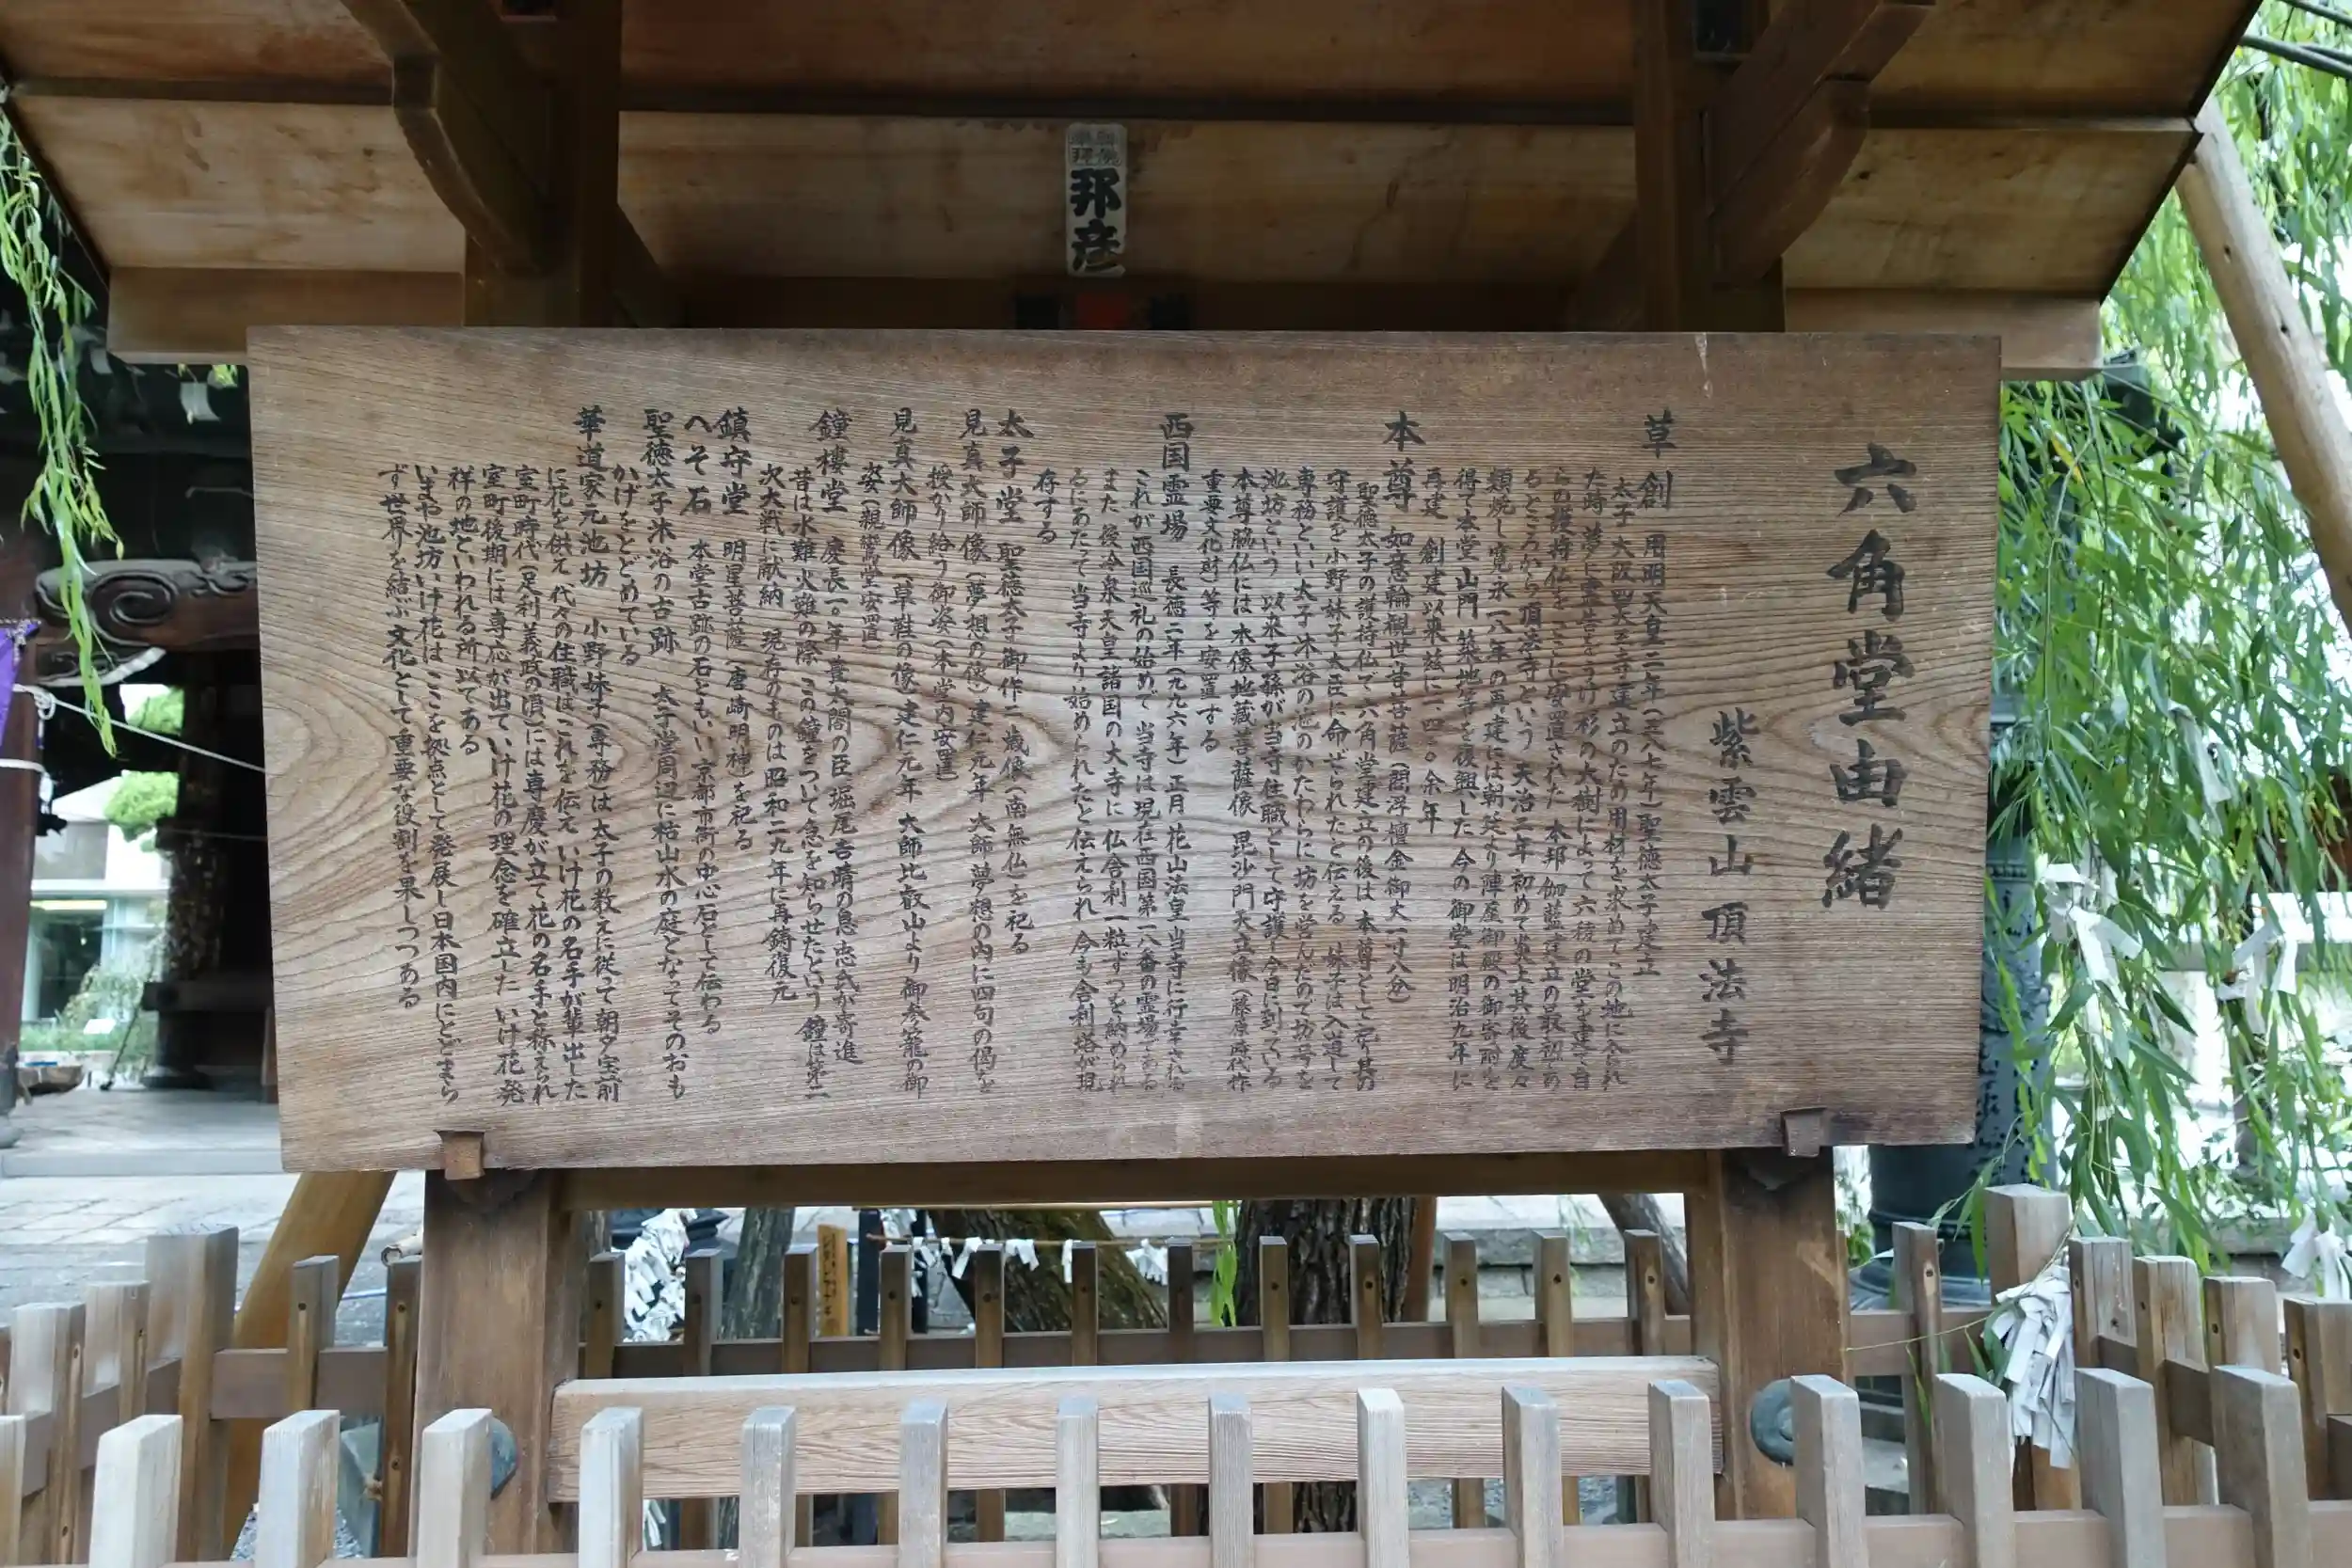 邦彦
六角堂由緒
紫雲山頂法寺
草創 用明天皇二年(五八七年)聖徳太子建立
太子 大阪四天王寺建立のため用材を求めてこの地に入られ
た時 夢に霊告をうけ 杉の大樹によって六稜の堂を建て自
らの護持仏を ここに安置された 本邦 伽藍建立の最初であ
るところから 頂法寺という 天治二年 初めて炎上其後度々
類焼し 寛永一八年の再建には朝廷より陣座御殿の御寄附を
得て本堂 山門 築地等を復興した 今の御堂は明治九年に
再建 創建以来 玆に一四〇〇余年
本尊 如意輪観世音菩薩(閻浮檀金御丈一寸八分)
聖徳太子の護持仏で 六角堂建立の後は 本尊として祀り其の
守護を 小野妹子大臣に命ぜられたと伝える 妹子は入道して
専務といい 太子沐浴の池のかたわらに坊を営んだので坊号を
池坊という 以来子孫が当寺住職として守護し今日に到っている
本尊脇仏には木像地蔵菩薩像 毘沙門天立像(藤原時代作
重要文化財)等を安置する
西国霊場 長徳二年(九九六年)正月 花山法皇 当寺に行幸される
これが西国巡礼の始めで 当寺は現在西国第一八番の霊場である
また 後冷泉天皇 諸国の大寺に 仏舎利一粒ずつを納められ
るにあたって当寺より始められたと伝えられ 今も舎利塔が現
存する
太子堂 聖徳太子御作二歳像(南無仏)を祀る
見真大師像(夢想の像)建仁元年 大師 夢想の内に四句の偈を
授かり給う御姿(本堂内安置)
見真大師像(草鞋の像)建仁元年 大師比叡山より御参籠の御
姿(親鸞堂安置)
鐘樓堂 慶長一〇年 豊太閤の臣 堀尾吉晴の息 忠氏が寄進
昔は水難火難の際 この鐘をついて急を知らせたという 鐘は第二
次大戦に献納 現存のものは昭和二九年に再鋳復元
鎮守堂 明星菩薩(唐崎明神)を祀る
へそ石 本堂古跡の石ともいい 京都市街の中心石として伝わる
聖徳太子沐浴の古跡 太子堂周辺に枯山水の庭となってそのおも
かげをとどめている
華道家元池坊 小野妹子(専務)は太子の教えに従って朝夕宝前
に花を供え 代々の住職はこれを伝え いけ花の名手が輩出した
室町時代(足利義政の頃)には専慶が立て花の名手と称えられ
室町後期には専応が出ていけ花の理念を確立した いけ花 発
祥の地といわれる所以である
いまや池坊いけ花は ここを拠点として発展し日本国内にとどまら
ず世界を結ぶ文化として重要な役割を果しつつある